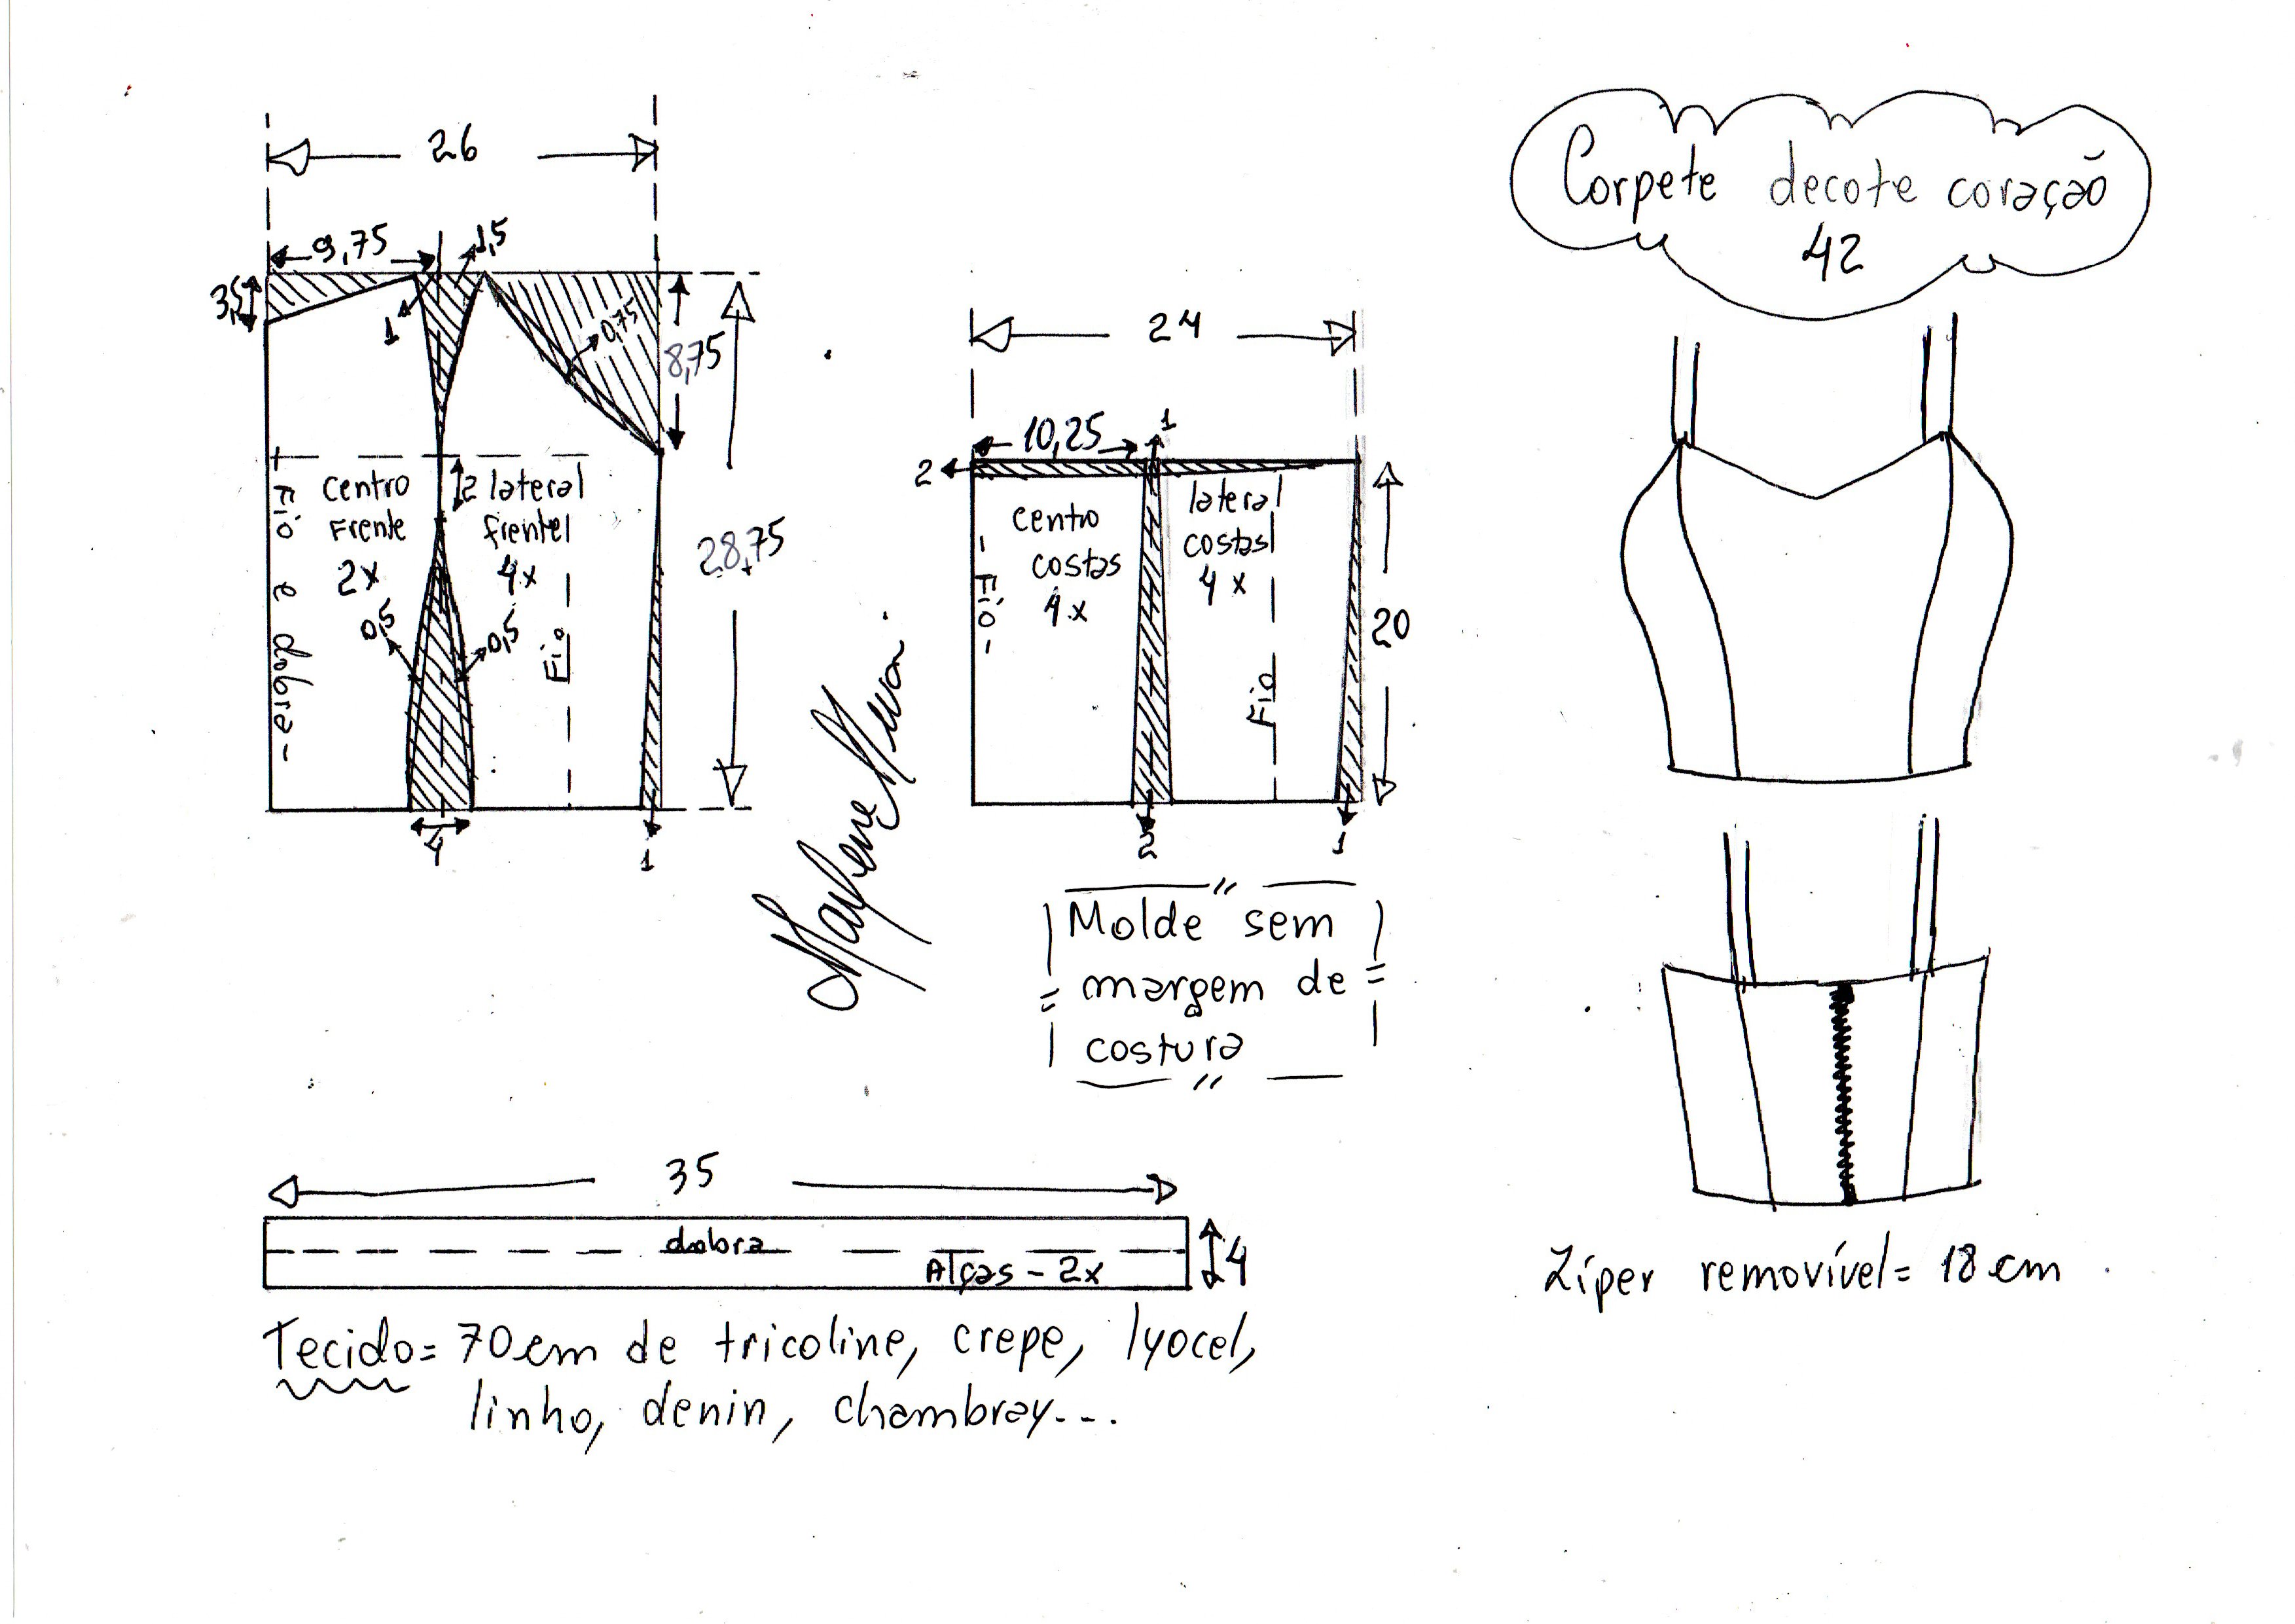 Corpete decote coração
42
26
9,75
1,5
3,5
1
0,75
8,75
28,75
2
Fio e dobra
centro
Frente
2x
lateral
frente
4x
0,5
0,5
Fio
4
1
24
10,25
1
2
Fio
centro
costas
4x
lateral
costas
4x
Fio
20
2
1
Marlene Mukai
Molde sem
margem de
costura
35
dobra
Alças - 2x
4
Tecido= 70cm de tricoline, crepe, lyocel,
linho, denin, chambray...
Zíper removível= 18 cm